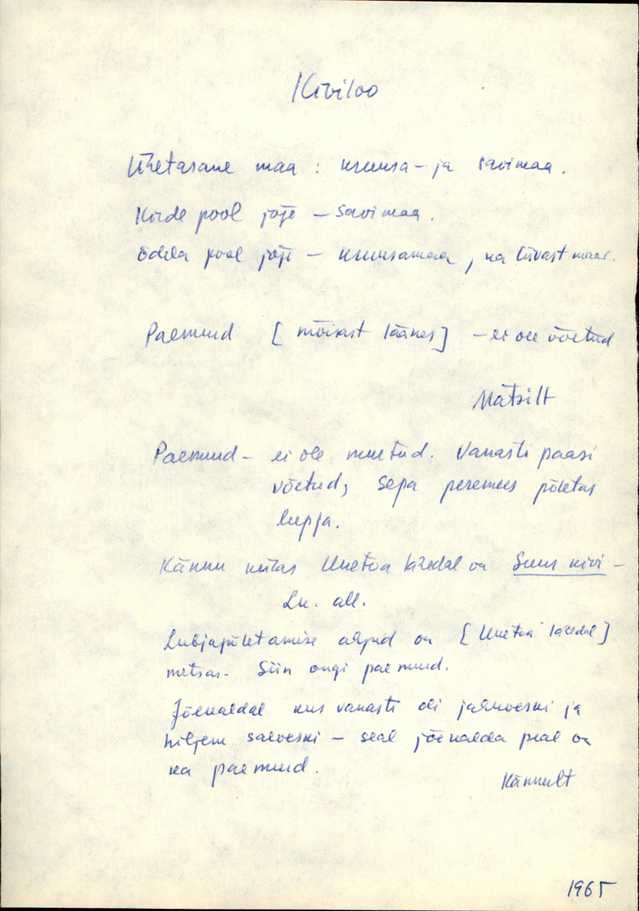 Kiviloo
Ühetasane maa : kruusa- ja savimaa.
Kirde pool jõge – savimaa.
Edela pool jõge – kruusamaa, ka liivast maad.
Paemurd [mõisast läänes] – ei ole võetud
Mätsilt
Paemurd – ei ole murtud. Vanasti paasi
võetud, Sepa peremees põletas
lupja.
Kännu külas Uuetoa käredal on Suur kivi –
Lu. all.
Lubjapõletamise ahjud on [Uuetoa käredal]
metsas. Siin ongi paemurd.
Jõekaldal kus vanasti oli jahuveski ja
hiljem saeveski – seal jõekalda peal on
ka paemurd.
Kännult
1965